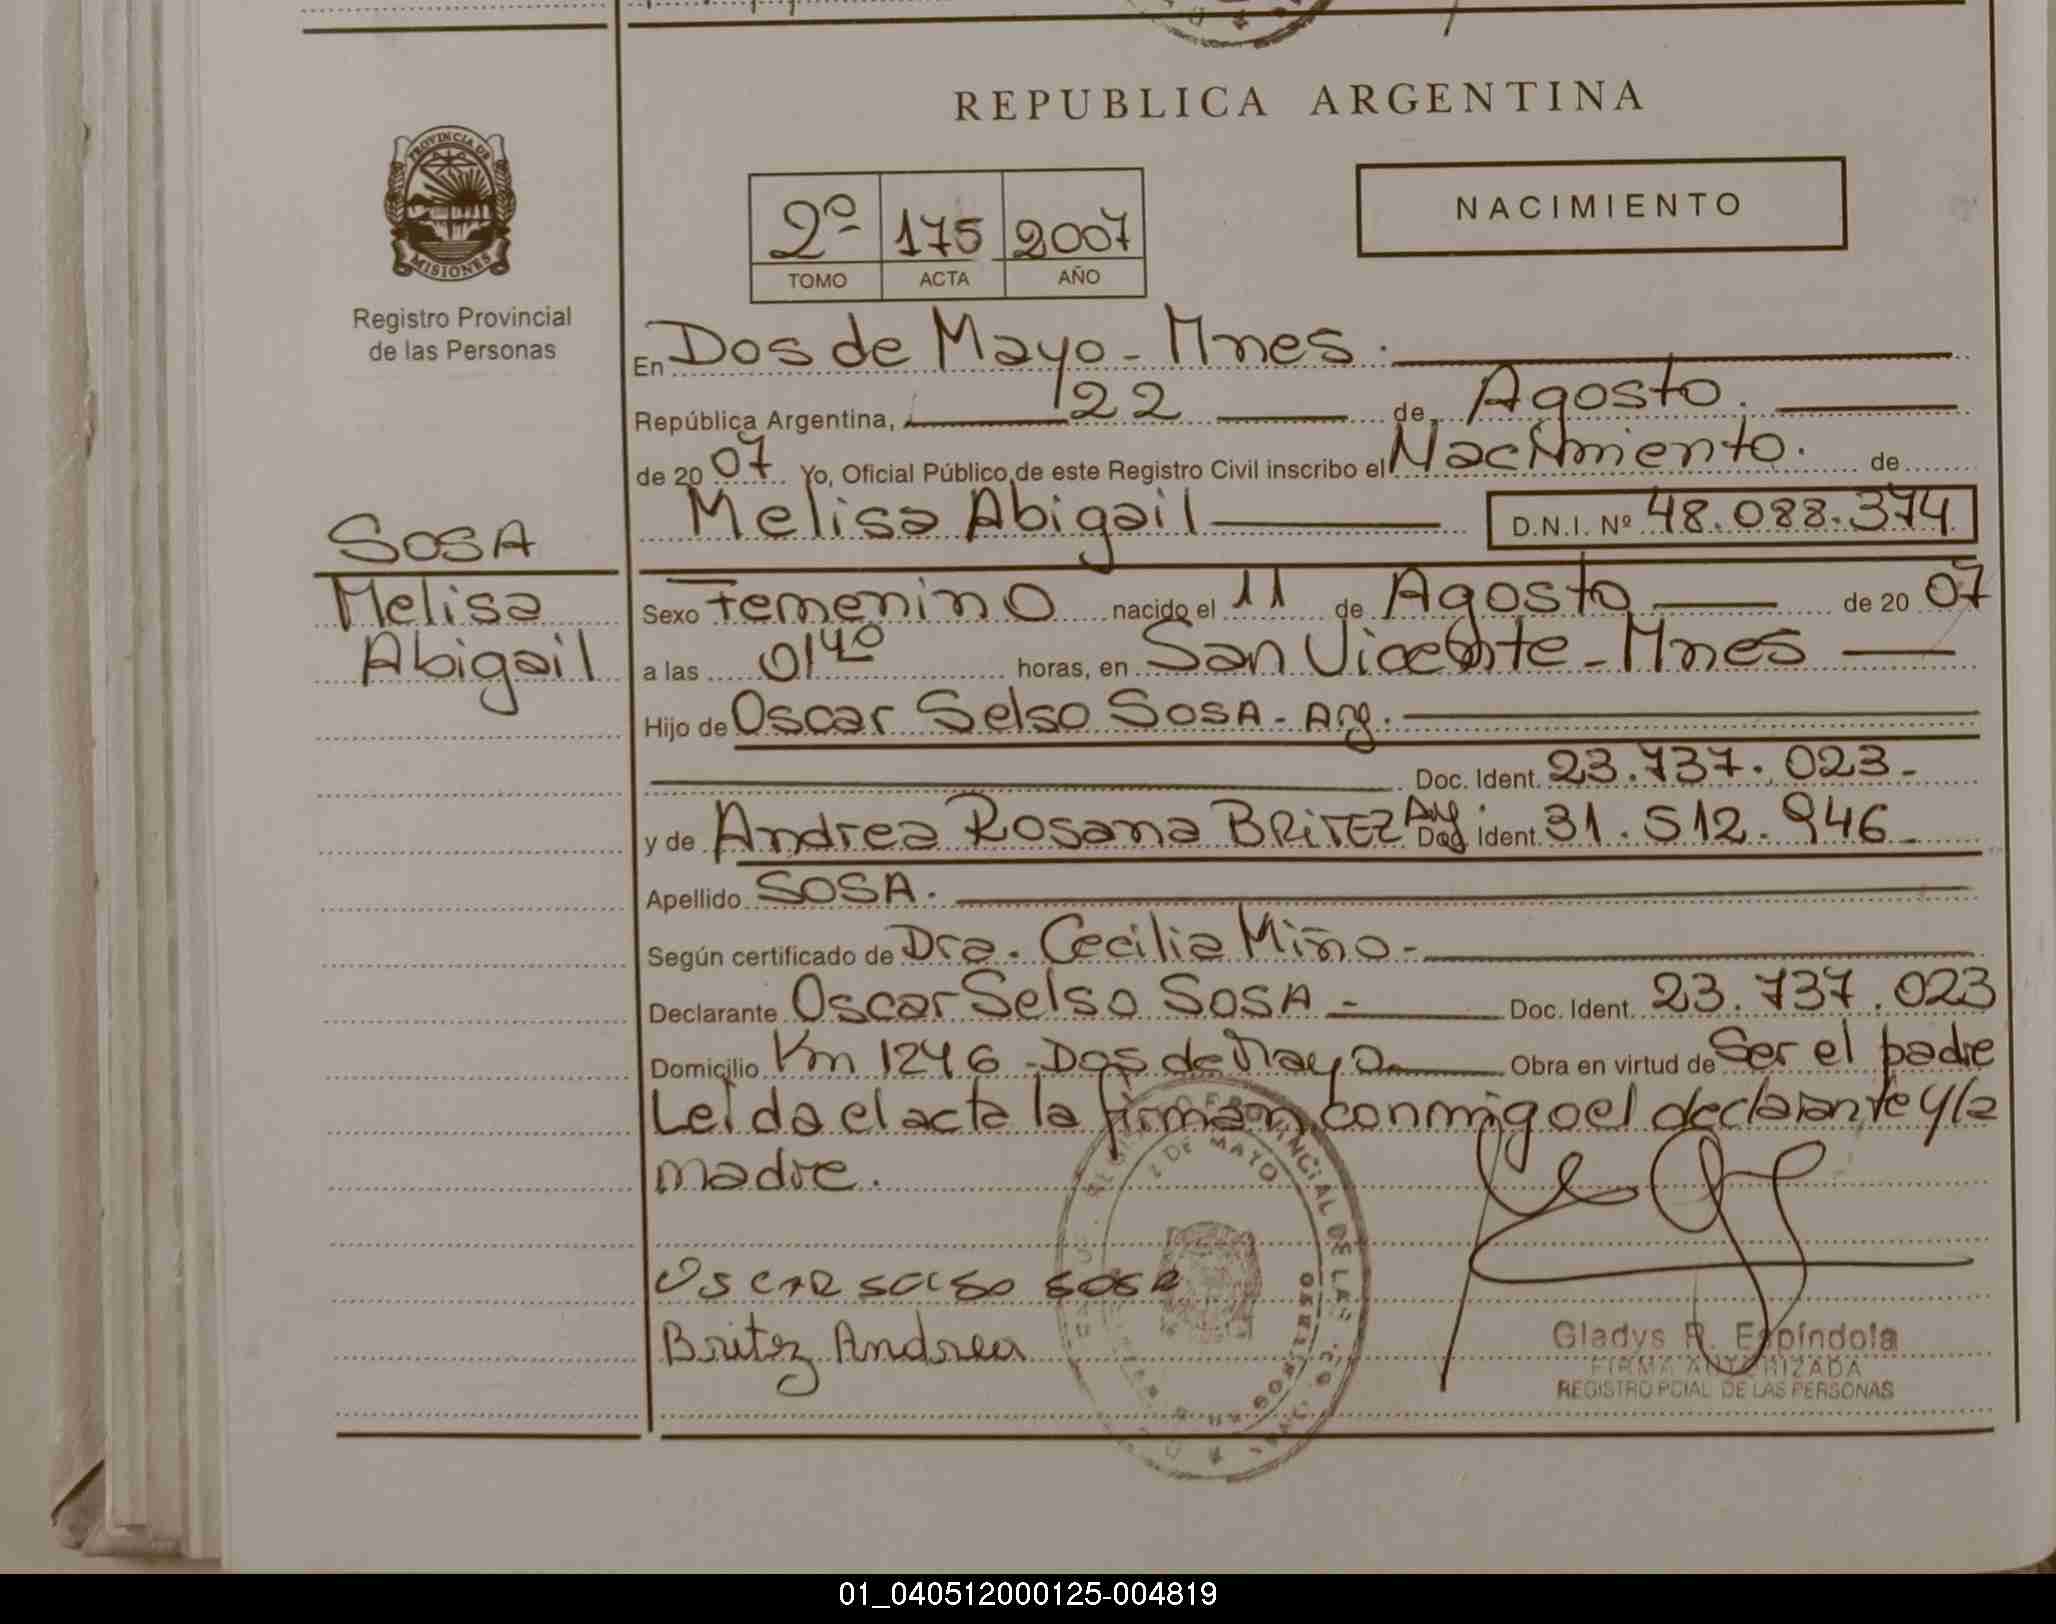 REPUBLICA ARGENTINA
PROVINCIA DE
MISIONES
Registro Provincial
de las Personas
2º 175 2007
TOMO ACTA AÑO
NACIMIENTO
En Dos de Mayo - Mnes.
República Argentina, 22 de Agosto.
de 20 07 Yo, Oficial Público de este Registro Civil inscribo el Nacimiento. de
Melisa Abigail D.N.I. Nº 48.088.374
SOSA
Melisa
Abigail
Sexo Femenino nacido el 11 de Agosto de 20 07
a las 01⁴⁰ horas, en San Vicente - Mnes
Hijo de Oscar Selso SOSA - Arg.
Doc. Ident. 23.737.023-
y de Andrea Rosana BRITEZ Arg. Doc. Ident. 31.512.946-
Apellido SOSA.
Según certificado de Dra. Cecilia Miño-
Declarante Oscar Selso SOSA - Doc. Ident. 23.737.023
Domicilio Km 1246 - Dos de Mayo Obra en virtud de Ser el padre
Leída el acta la firman conmigo el declarante y la
madre.
2 DE MAYO
OSCAR SELSO SOSA
Britez Andrea
Gladys R. Espíndola
FIRMA AUTORIZADA
REGISTRO PCIAL DE LAS PERSONAS
01_040512000125-004819